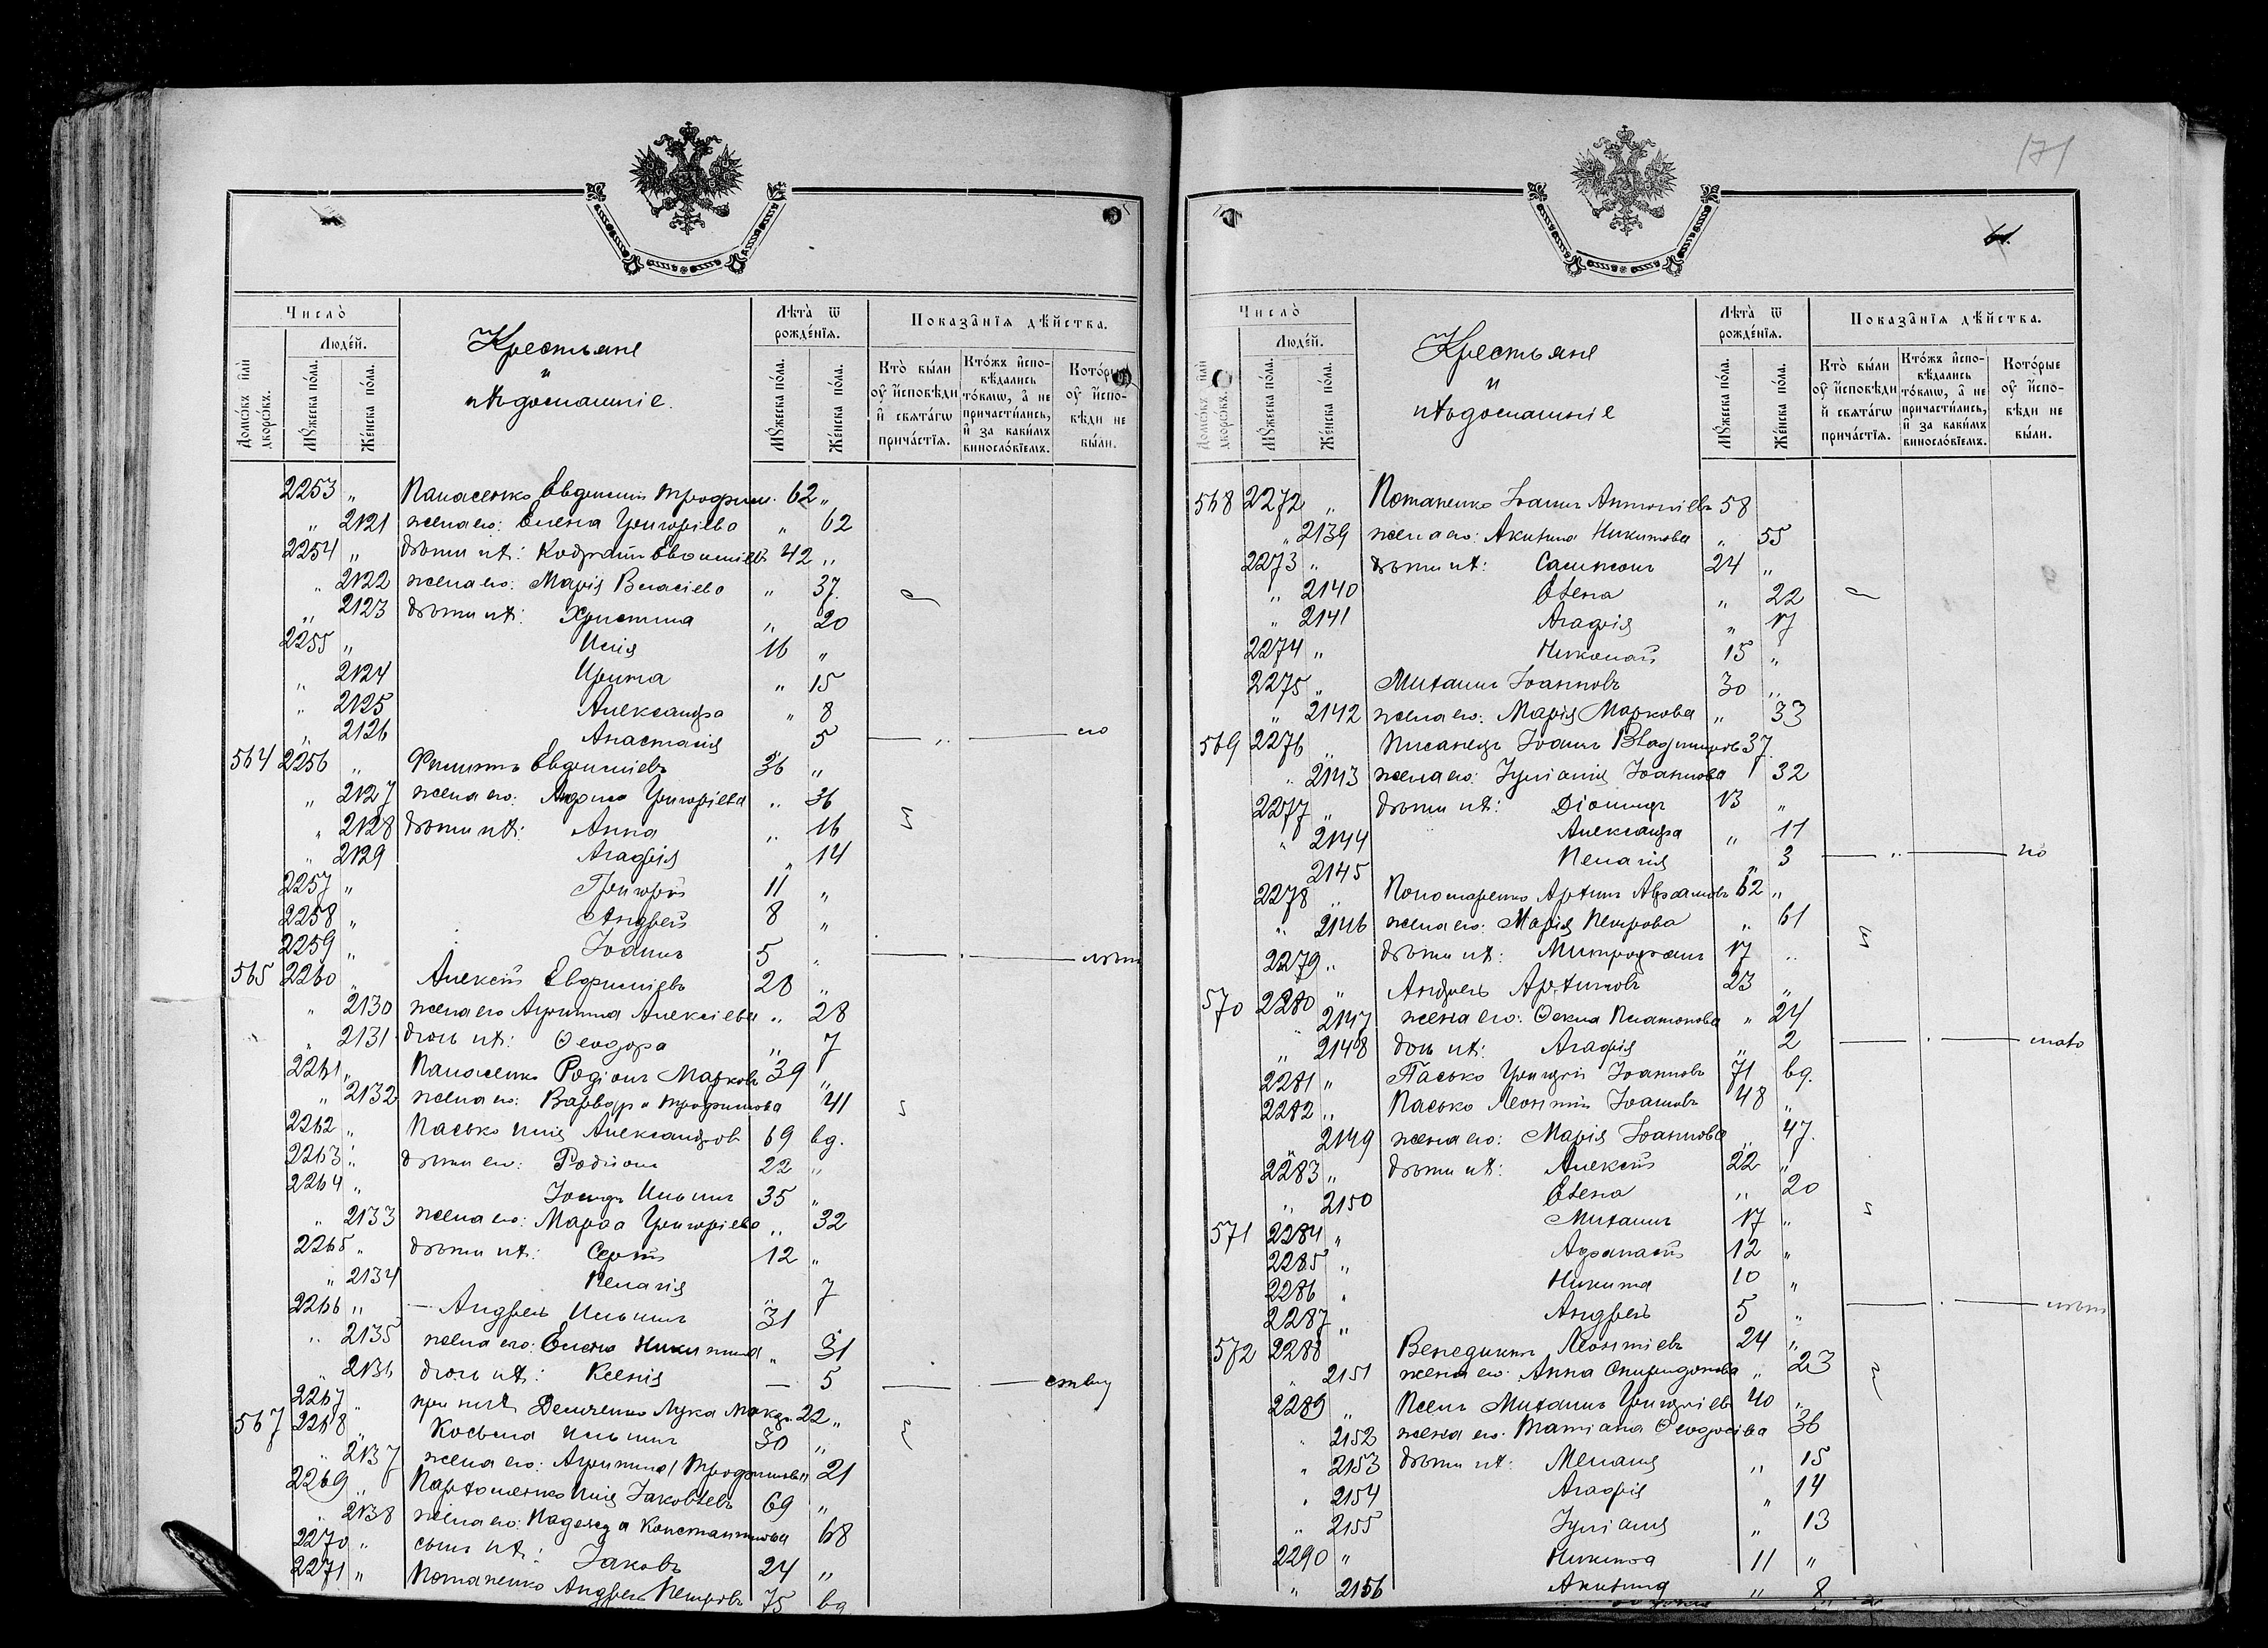 Число̀
Люде́й.
Домо́въ и҆лѝ дворѡ́въ.
Мꙋ́жеска по́ла.
Же́нска по́ла.
Крестьяне
и
ихъ домашніе.
Лѣта̀ ѿ рожде́нїѧ.
Мꙋ́жеска по́ла.
Же́нска по́ла.
Показа̑нїѧ дѣ́йства.
Кто̀ бы́ли оу҆ и҆сповѣ́ди и҆ свѧта́гѡ прича́стїѧ.
Кто́жъ и҆сповѣ́дались то́кмѡ, а҆ не причасти́лись, и҆ за каки́мъ виносло́вїемъ.
Кото́рые оу҆ и҆спо-вѣ́ди не бы́ли.
2253 " Панасенко Евдокимъ Трофим. 62 "
" 2121 жена его: Елена Григоріева " 62
2254 " дѣти ихъ: Кодратъ Евдокиміевъ 42 "
" 2122 жена его: Марія Власіева " 37.
" 2123 дѣти ихъ: Христина " 20
2255 " Илія 16 "
" 2124 Ирина " 15
" 2125 Александра " 8
" 2126 Анастасія 5 — " — но
564 2256 " Филиппъ Евдокиміевъ 36 "
" 2127 жена его: Григоріева " 36
" 2128 дѣти ихъ: Анна " 16
" 2129 Агафія " 14
2257 " Григорій 11 "
2258 " Андрей 8 "
2259 " Іоаннъ 5 "
565 2260 " Алексій Евфиміевъ 28 "
" 2130 жена его Агрипина Алексіева " 28
" 2131 дочь ихъ: Ѳеодора " 7
2261 " Панасенко Родіонъ Марковъ 39 "
" 2132 жена его: Варвара Трофимова 41
2262 " Пасько Илія Александров 69 вд.
2263 " дѣти его: Родіонъ 22 "
2264 " Іосифъ Ильинъ 35 "
" 2133 жена его: Марѳа Григоріева " 32
2265 " дѣти ихъ: Сергій 12 "
" 2134 Пелагія " 7
2266 " — Андрей Ильинъ 31
" 2135 жена его: Елена Никитина " 31
" 2136 дочь ихъ: Ксенія — 5
2267 " при нихъ Демченко Лука Макар. 22 "
567 2268 " Косьма Ильинъ 30 "
" 2137 жена его: Агрипина Трофимова 21
2269 " Пархоменко Илія Іаковлевъ 69 "
" 2138 жена его: Надежда Константинова 68
2270 " сынъ ихъ: Іаковъ 24 "
2271 " Потапенко Андрей Петровъ 75 вд
171
Число̀
Люде́й.
Домо́въ и҆лѝ дворѡ́въ.
Мꙋ́жеска по́ла.
Же́нска по́ла.
Крестьяне
и
ихъ домашніе
Лѣта̀ ѿ рожде́нїѧ.
Мꙋ́жеска по́ла.
Же́нска по́ла.
Показа̑нїѧ дѣ́йства.
Кто̀ бы́ли оу҆ и҆сповѣ́ди и҆ свѧта́гѡ прича́стїѧ.
Кто́жъ и҆сповѣ́дались то́кмѡ, а҆ не причасти́лись, и҆ за каки́мъ виносло́вїемъ.
Кото́рые оу҆ и҆спо-вѣ́ди не бы́ли.
568 2272 " Потапенко Іоаннъ Антоніевъ 58
" 2139 жена его: Акилина Никитова " 55
2273 " дѣти ихъ: Сампсонъ 24 "
" 2140 Евгена " 22
" 2141 Агафія " 17
2274 " Николай 15 "
2275 " Михаилъ Іоанновъ 30 "
" 2142 жена его: Марія Маркова " 33
569 2276 " Писанецъ Іоаннъ Владиміров 37.
" 2143 жена его: Іуліанія Іоаннова 32
2277 " дѣти ихъ: 13 "
" 2144 Александра " 11
2145 Пелагія " 3 — " — но
2278 " Пономаренко Артемъ Аврамовъ 62 "
" 2146 жена его: Марія Петрова " 61
2279 " дѣти ихъ: Митрофанъ 17 "
570 2280 " Андрей Артемовъ 23 "
" 2147 жена его: Ѳекла Платонова " 24
" 2148 дочь ихъ: Агафія " 2
2281 " Пасько Григорій Іоанновъ 71 вд.
2282 " Пасько Леонтій Іоановъ 48 "
" 2149 жена его: Марія Іоаннова " 47.
2283 " дѣти ихъ: Алексій 22 "
" 2150 Евгена " 20
571 2284 " Михаилъ 17 "
2285 " Афанасій 12 "
2286 " Никита 10 "
2287 " Андрей 5 "
572 2288 Венедиктъ Леонтіевъ 24 "
" 2151 жена его: Анна Спиридонова " 23
2289 " Михаилъ Григоріев 40 "
" 2152 жена его: Татіана Ѳеодосіева 36
" 2153 дѣти ихъ: Меланія " 15
" 2154 Агафія " 14
" 2155 Іуліанія " 13
2290 " Никита 11 "
" 2156 Акилина " 8